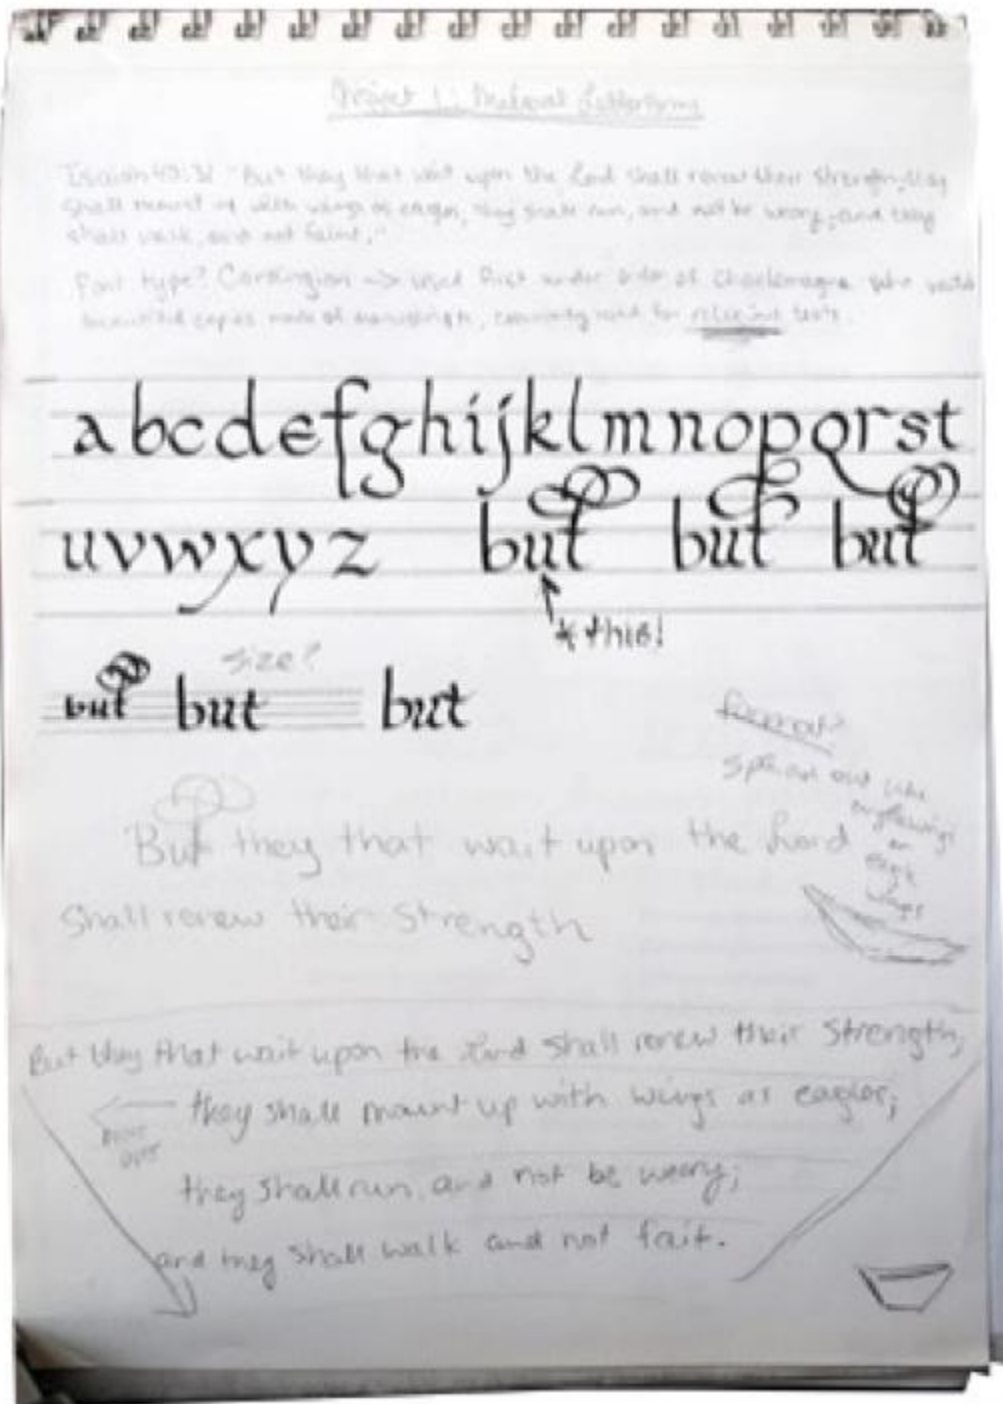 Project 1: Medieval Letterforms
Isaiah 40:31 "But they that wait upon the Lord shall renew their strength, they
shall mount up with wings as eagles, they shall run, and not be weary, and they
shall walk, and not faint."
Font type? → used first under order of Charlemagne who
beautiful copies made of manuscripts, commonly used for religious texts.
a b c d e f g h i j k l m n o p q r s t
u v w x y z but but but
* this!
size?
but but but
format?
spread out like
eagle wings
or
eagle
wings
But they that wait upon the Lord
shall renew their strength
But they that wait upon the Lord shall renew their strength,
they shall mount up with wings as eagles;
they shall run and not be weary;
and they shall walk and not fait.